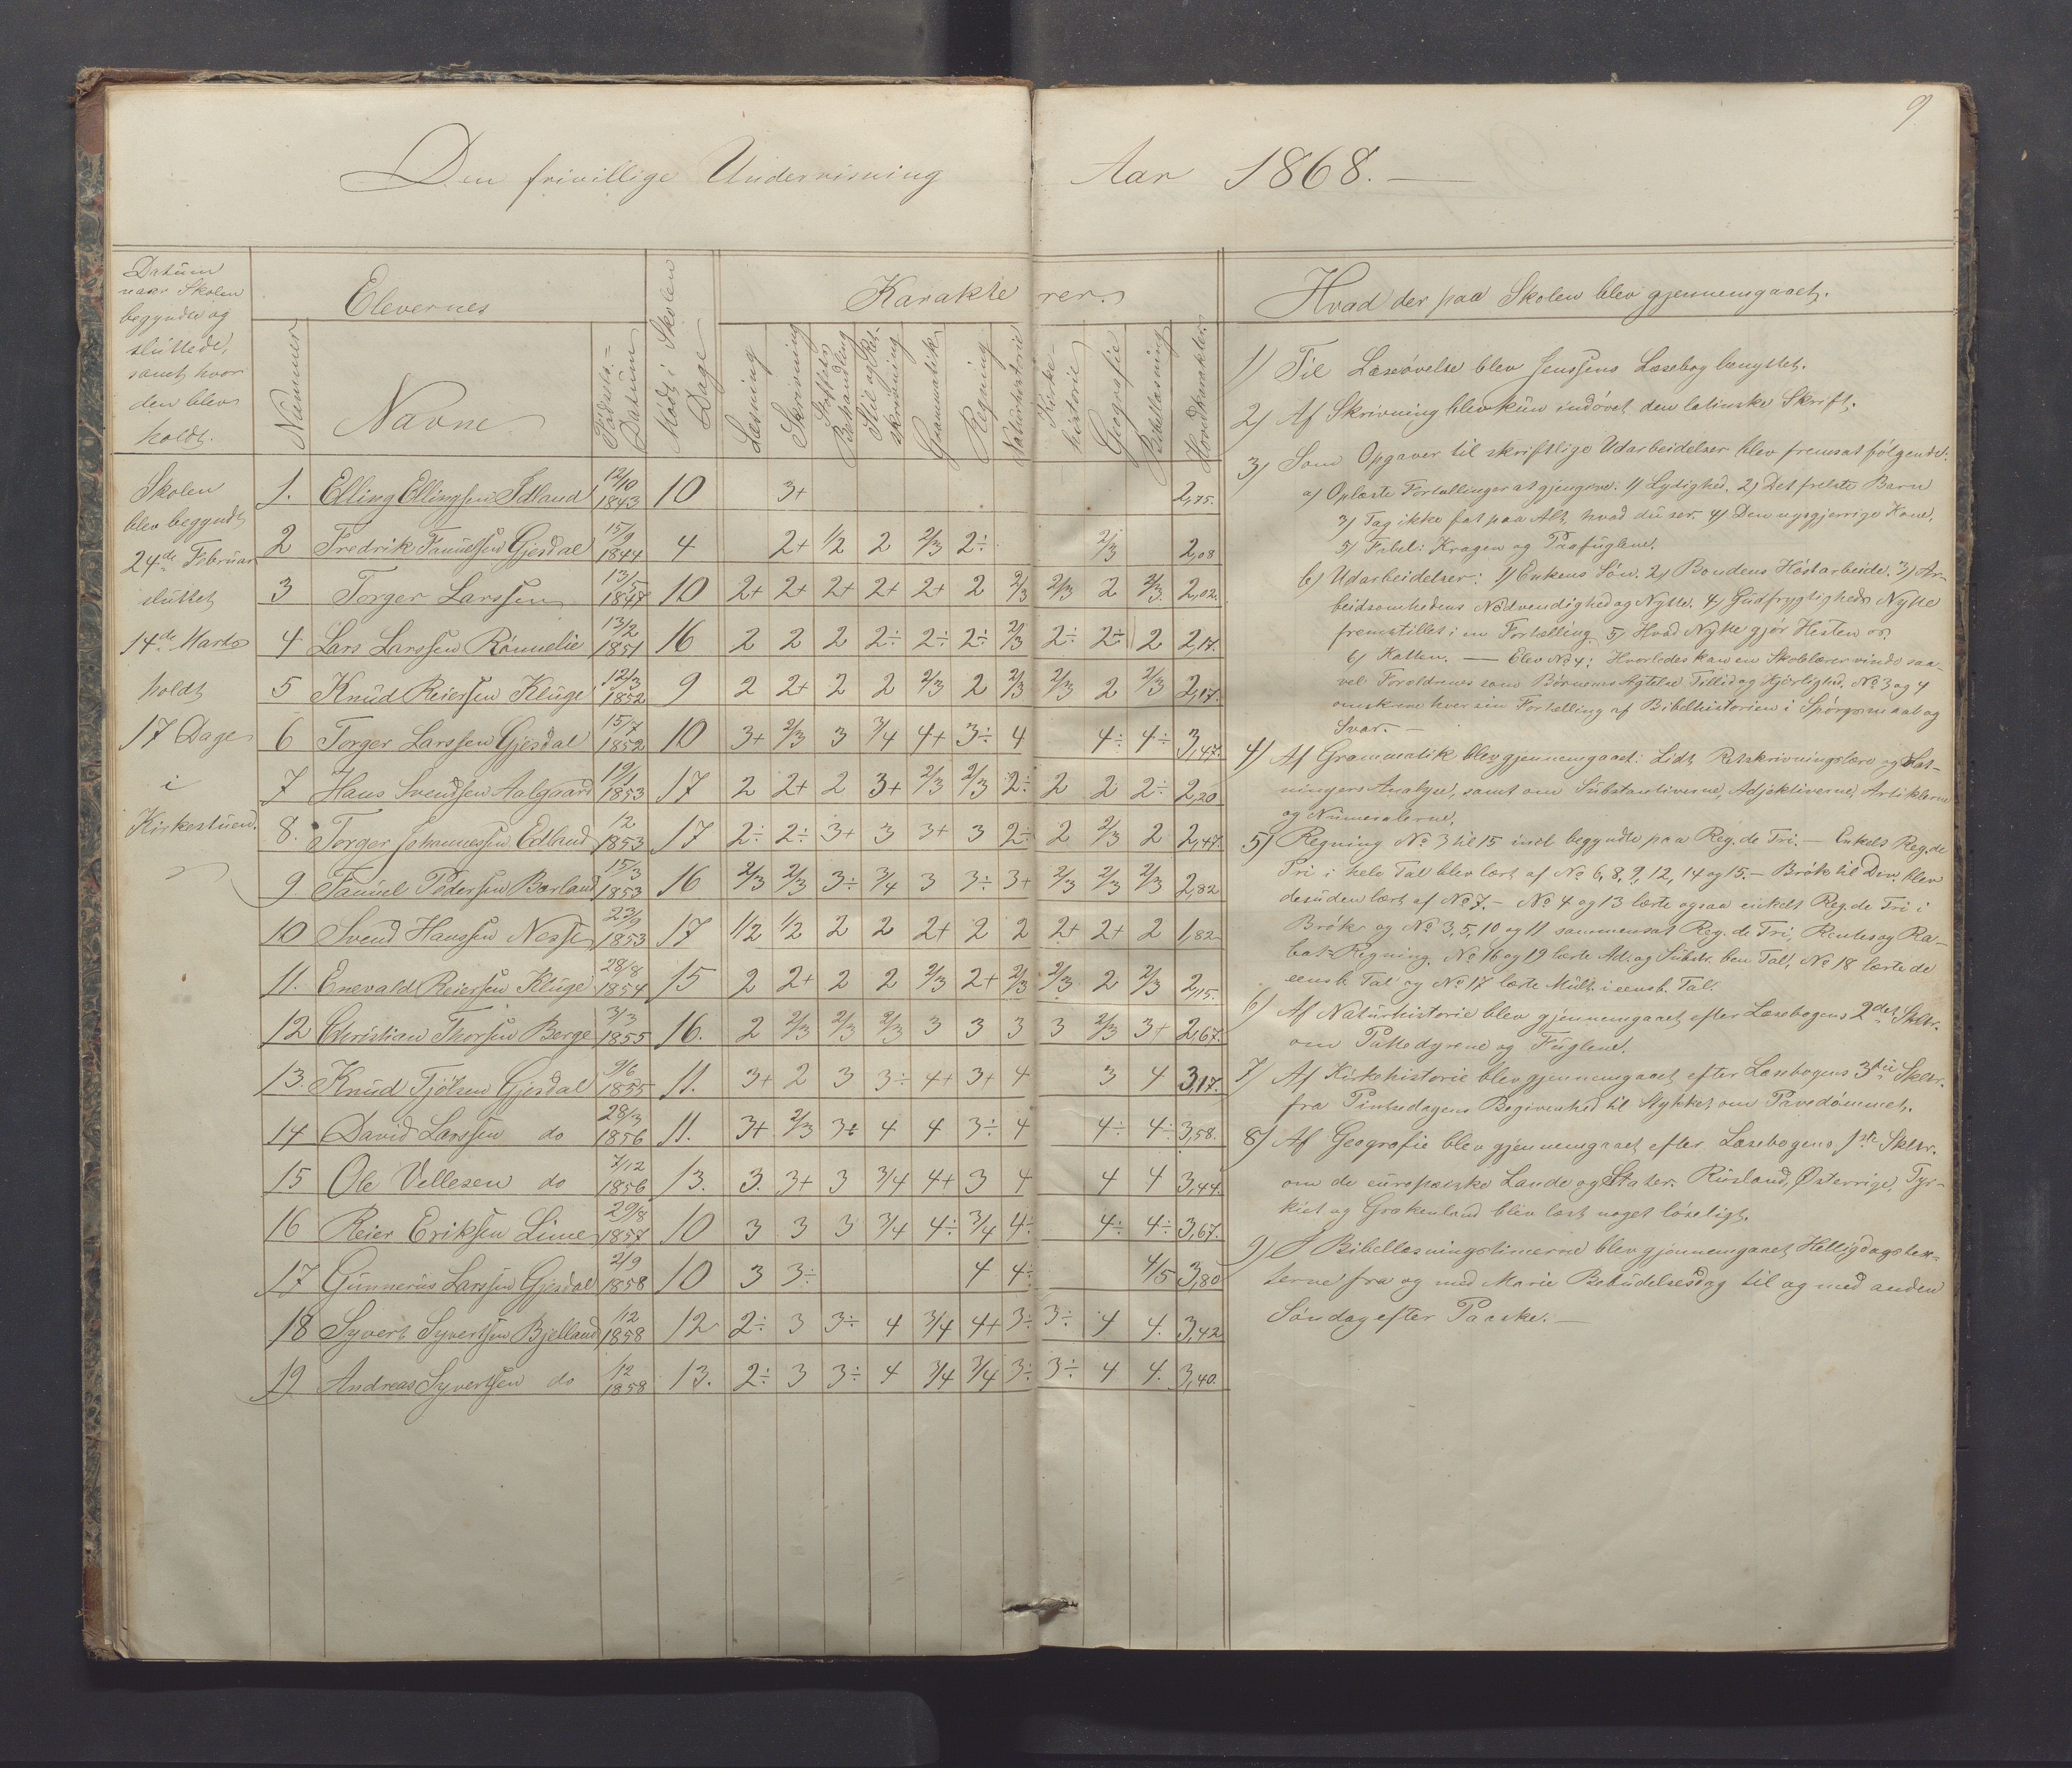 9
Den frivillige Undervisning Aar 1868. —
Datum
naar Skolen
begyndte og
sluttede,
samt hvor
den blev
holdt.
Elevernes
Nummer
Navne
Födsels-
Datum
Mödt i Skolen
Dage
Karakterer.
Læsning
Skrivning
Stoffets
Behandling
Stil og Ret-
skrivning
Grammatik
Regning
Naturhistorie
Kirke-
historie
Geografie
Bibellæsning
Hovedkarakter.
Skolen
blev begyndt
24de Februar
sluttet
14de Marts
holdt
17 Dage
i
Kirkestuen.
1. Elling Ellingsen Edland 12/10 1843 10 3+ 2,75.
2 Fredrik Samuelsen Gjesdal 15/9 1844 4 2+ 1/2 2 2/3 2÷ 2/3 2,08
3 Torger Larssen 13/5 1847 10 2+ 2+ 2+ 2+ 2+ 2 2/3 2/3 2 2/3 2,02.
4 Lars Larssen Rönnelie 13/2 1851 16 2 2 2 2÷ 2÷ 2÷ 2/3 2÷ 2÷ 2 2,17.
5 Knud Reiersen Kluge 12/3 1852 9 2 2+ 2 2 2/3 2 2/3 2/3 2 2/3 2,17.
6 Torger Larssen Gjesdal 15/7 1852 10 3+ 2/3 3 3/4 4+ 3÷ 4 4÷ 4÷ 3,47.
7 Hans Svendsen Aalgaard 19/11 1853 17 2 2+ 2 3+ 2/3 2/3 2÷ 2 2 2÷ 2,20
8. Torger Johannessen Edland 12 1853 17 2÷ 2÷ 3+ 3 3+ 3 2÷ 2 2/3 2 2,47.
9. Samuel Pedersen Bærland 15/3 1853 16 2/3 2/3 3÷ 3/4 3 3÷ 3+ 2/3 2/3 2/3 2,82
10 Svend Hanssen Nesse 23/9 1853 17 1/2 1/2 2 2 2+ 2 2 2+ 2+ 2 1,82
11. Enevald Reiersen Kluge 28/8 1854 15 2 2+ 2 2 2/3 2+ 2/3 2/3 2 2/3 2,15.
12 Christian Thorsen Berge 3/3 1855 16. 2 2/3 2/3 2/3 3 3 3 3 2/3 3+ 2,67.
13. Knud Tjölsen Gjesdal 9/6 1855 11. 3+ 2 3 3÷ 4+ 3+ 4 3 4 3,17.
14 David Larssen do 28/3 1856 11. 3+ 2/3 3+ 4 4 3÷ 4 4÷ 4÷ 3,58.
15 Ole Vellesen do 7/12 1856 13. 3. 3+ 3 3/4 4+ 3 4 4 4 3,44.
16 Reier Eriksen Lime 29/8 1857 10 3 3 3 3/4 4÷ 3/4 4÷ 4÷ 4÷ 3,67.
17 Gunnerius Larssen Gjesdal 2/9 1858 10 3 3÷ 4 4÷ 4/5 3,80
18 Syvert Syvertsen Bjelland 12 1858 12 2÷ 3 3÷ 4 3/4 4+ 3÷ 3÷ 4 4. 3,42
19. Andreas Syvertsen do 12 1858 13. 2÷ 3 3÷ 4 3/4 3/4 3÷ 3÷ 4 4. 3,40.
Hvad der paa Skolen blev gjennemgaaet.
1) Til Læseövelse blev Jenssens Læsebog benyttet.
2) Af Skrivning blev kun indövet den latinske Skrift.
3) Som Opgaver til skriftlige Udarbeidelser blev fremsat fölgende:
a) Oplæste Fortællinger at gjengive. 1) Lydighed. 2) Det frelste Barn
3) Tag ikke fat paa Alt, hvad du ser. 4) Den nysgjerrige Kone.
5) Fabel: Kragen og Paafuglene.
b) Udarbeidelser: 1) Enkens Sön. 2) Bondens Höstarbeide. 3) Ar-
beidsomhedens Nödvendighed og Nytte. 4) Gudfrygtigheds Nytte
fremstillet i en Fortælling. 5) Hvad Nytte gjör Hesten os.
6) Katten. — Elev No 4: Hvorledes kan en Skolelærer vinde saa-
vel Forældrenes som Børnenes Agtelse Tillid og Kjærlighed. No 3 og 4
omskrev hver sin Fortælling af Bibelhistorien i Spörgsmaal og
Svar. —
4) Af Grammatik blev gjennemgaaet: Lidt Retskrivningslære og Sæt-
ningers Analyse, samt om Substantiverne, Adjektiverne, Artiklerne
og Numeralerne.
5) Regning No 3 til 15 incl. begyndte paa Reg. de Tri. — Enkelt Reg. de
Tri i hele Tal blev lært af No 6, 8, 9, 12, 14 og 15. — Brök til Div. blev
desuden lært af No 7. — No 4 og 13 lærte ogsaa enkelt Reg. de Tri i
Brök og No 3, 5, 10 og 11 sammensat Reg. de Tri, Rentes og Ra-
bat Regning. No 16 og 19 lærte Ad. og Subtr. ben Tal, No 18 lærte de
eensb. Tal og No 17 lærte Mult. i eensb. Tal.
6) Af Naturhistorie blev gjennemgaaet efter Læsebogens 2det Skktr.
om Pattedyrene og Fuglene.
7) Af Kirkehistorie blev gjennemgaaet efter Læsebogens 3die Skktr.
fra Pintsedagens Begivenhed til Stykket om Pavedömmet.
8) Af Geografie blev gjennemgaaet efter Læsebogens 1ste Skktr.
om de europæiske Lande og Stater. Rusland, Østerrige, Tyr-
kiet og Grækenland blev læst noget löseligt.
9) I Bibellæsningstimerne blev gjennemgaaet Helligdagstex-
terne fra og med Marie Bebudelsesdag til og med anden
Söndag efter Paaske. —